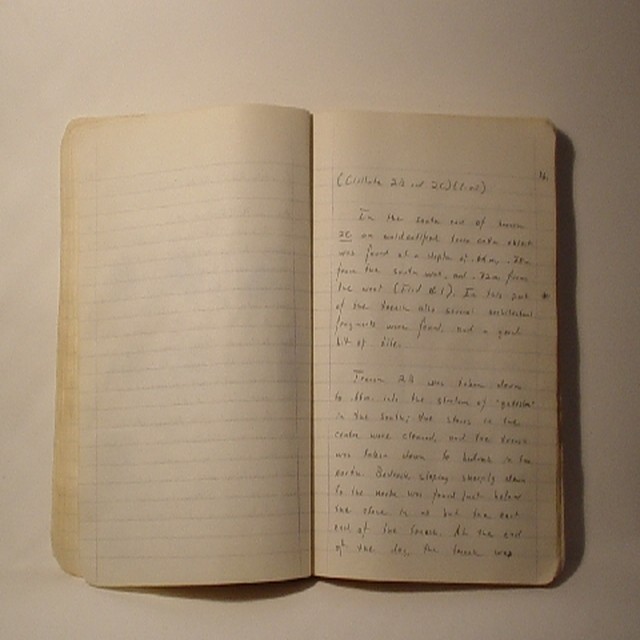 In the south end of trench
2C an unidentified terra cotta object
was found at a depth of .66m,
from the south wall, and .72m from
the west (Field # 1). In this part
of the trench also several architectural
fragments were found, and a good
bit of tile.
Trench 2B was taken down
to the stratum of
in the south; the stones in the
center were cleaned, and the trench
was taken down to bedrock in the
north. Bedrock sloping sharply down
to the north was found just below
the stone in at but the east
end of the trench. At the end
of the day the trench was